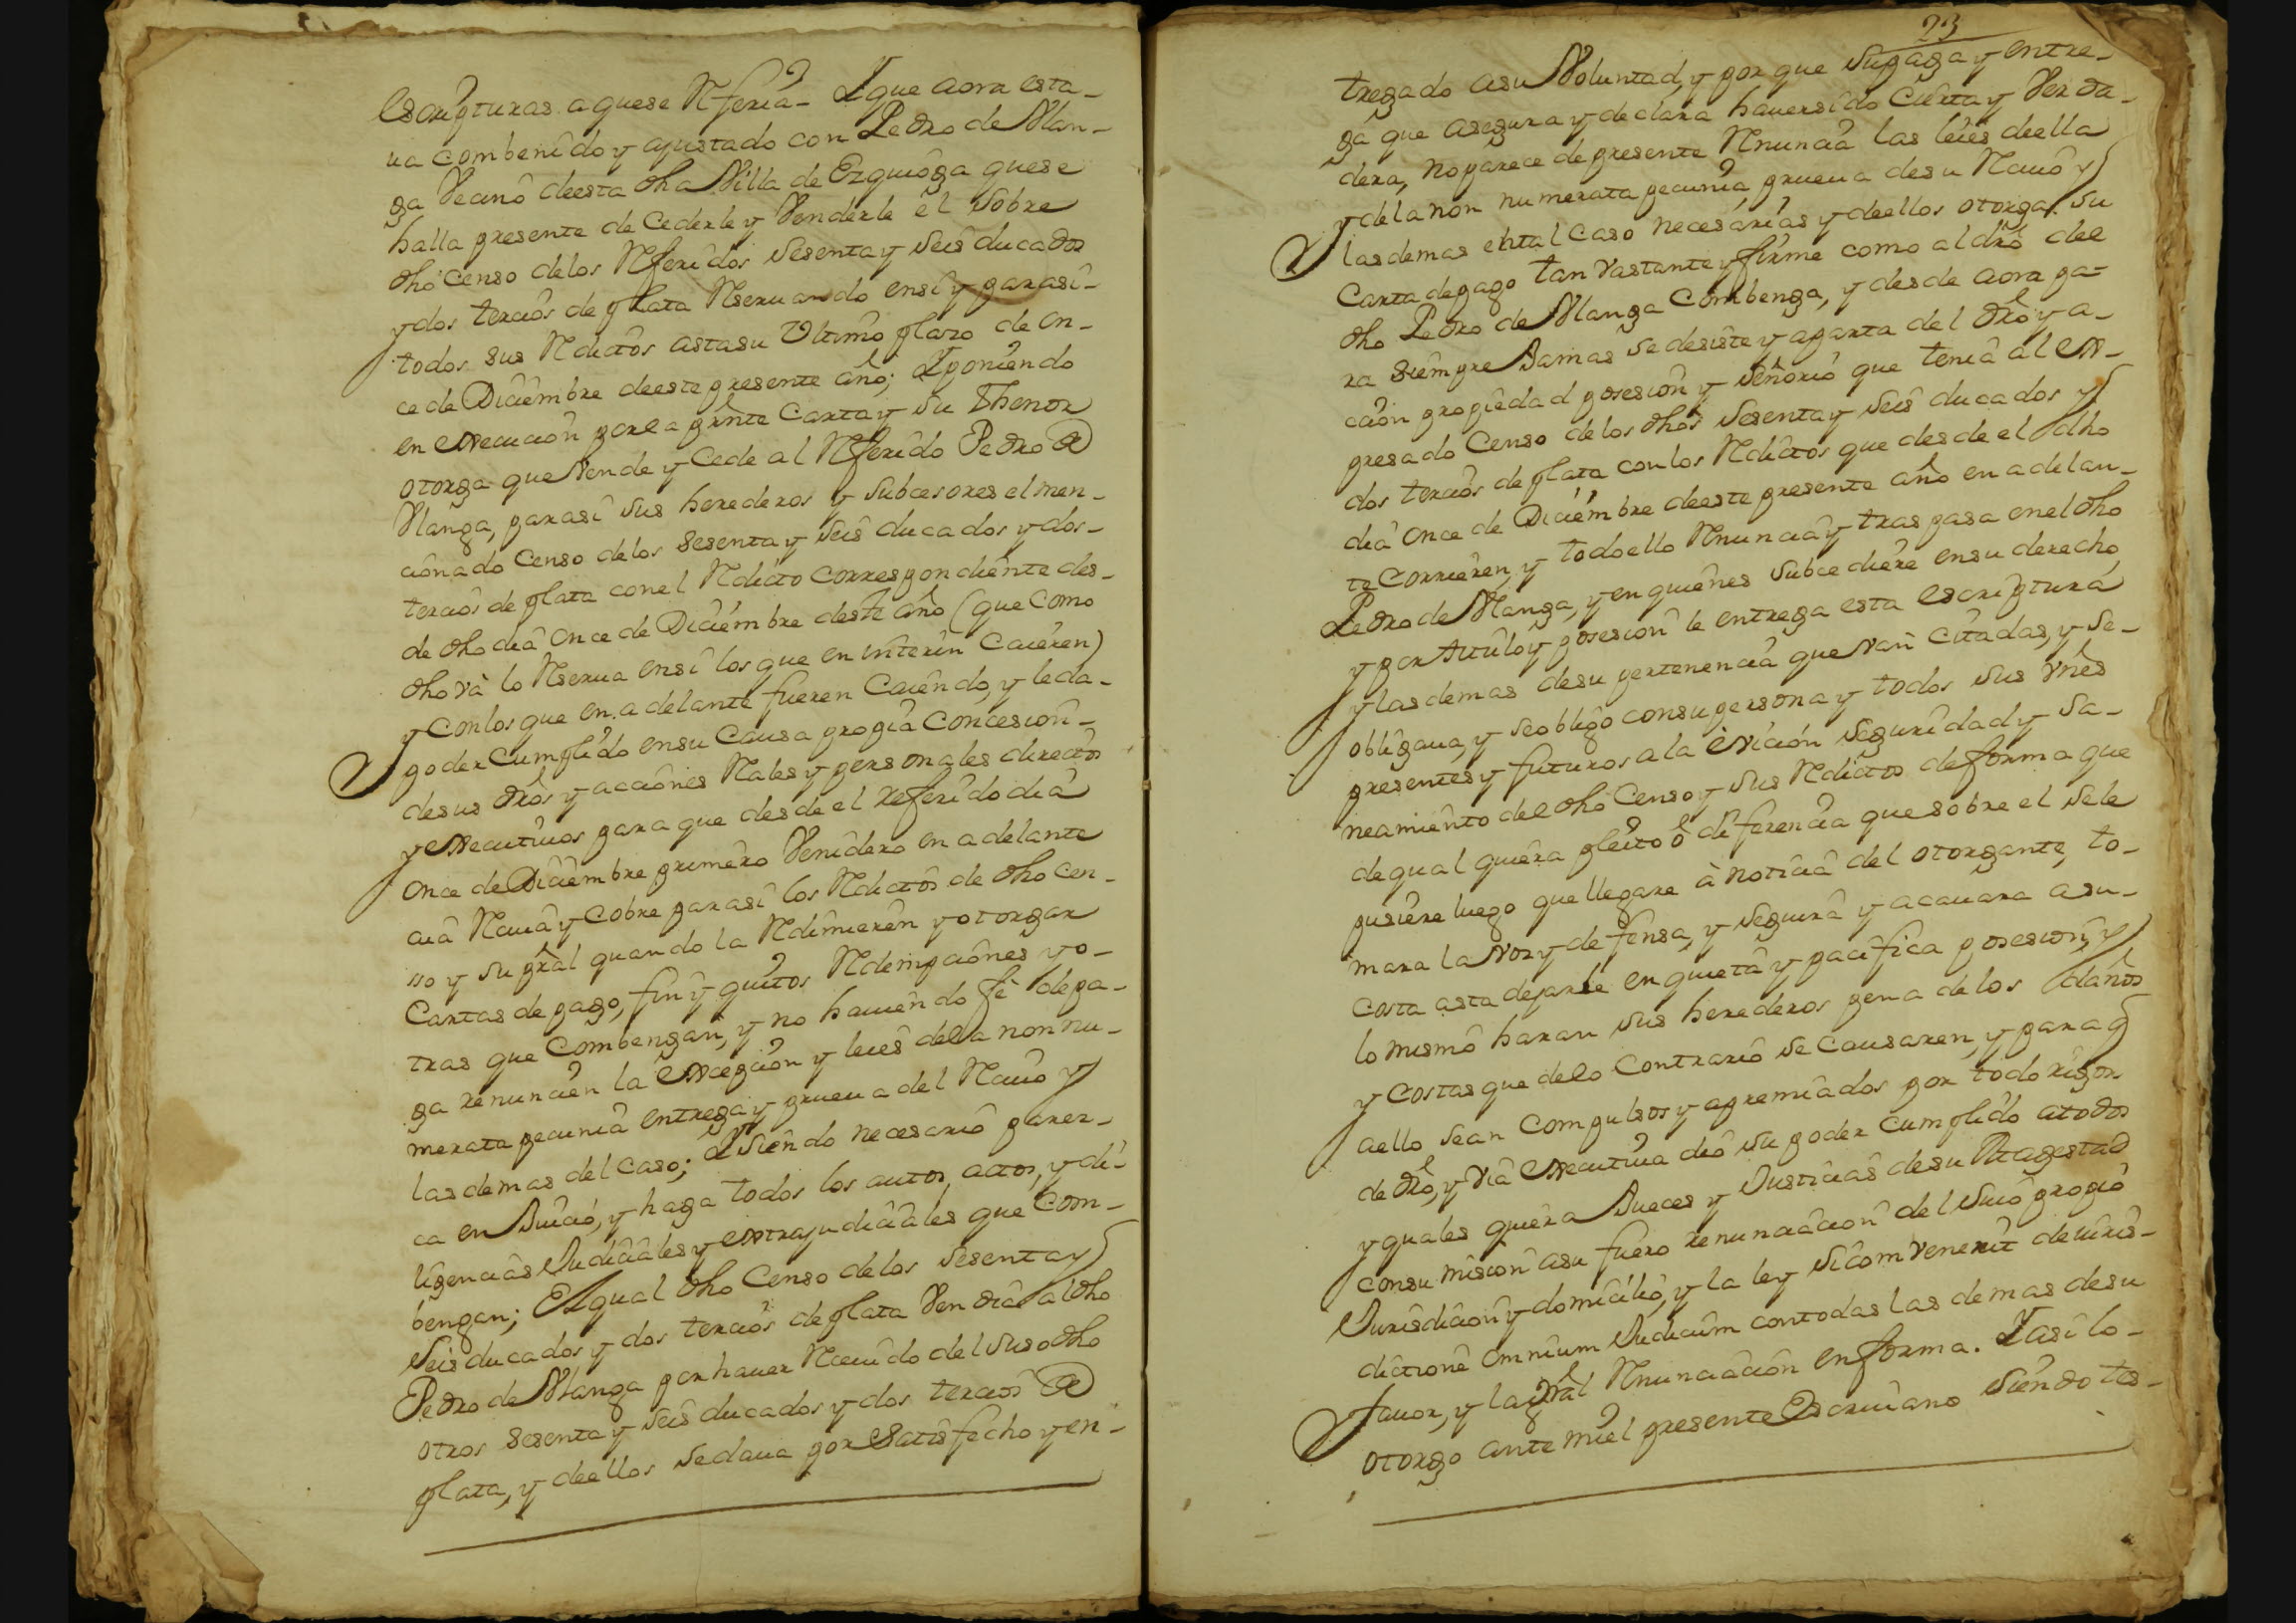 escripturas a que se Rferia- Y que aora esta-
ua combenido y ajustado con Pedro de Man-
ga Vecino de esta dha Villa de Ezquioga que se
halla presente de Cederle y Venderle el sobre
dho censo de los Rferidos sesenta y seis ducados
y dos tercios de plata Rseruando en si y para si-
todos sus Rditos asta su Vltimo plazo de on-
ce de Diciembre de este presente año; Y poniendo
en execucion por la presnte Carta y su thenor
otorga que Vende y Cede al Rferido Pedro de
Manga, para si sus herederos y subcesores el men-
cionado Censo de los sesenta y seis ducados y dos-
tercios de plata con el Rdito correspondiente des-
de dho dia once de Diciembre deste año (que como
dho va lo Rserua en si los que en interin Caieren)
y con los que en adelante fueren Caiendo, y le da-
poder Cumplido en su Causa propia Concesion-
de sus dros y acciones Rales y personales directos
y executiuos para que desde el referido dia
once de Diciembre primero Venidero en adelante
aia Rciua y Cobre para si los Rditos de dho Cen-
so y su pral quando la Rdimieren y otorgar
Cartas de pago, fin y quitos Rdempciones y o-
tras que Combengan, y no hauiendo fe de pa-
ga renuncien la excepcion y leies de la non nu-
merata pecunia entrega y prueua del Rciuo y
las demas del caso; Y siendo necesario parez-
ca en Juicio, y haga todos los autos, actos, y di-
ligencias Judiciales y extrajudiciales que Com-
bengan; El qual dho Censo de los sesenta y
seis ducados y dos tercios de plata Vendia al dho
Pedro de Manga por hauer Rciuido del suso dho
otros sesenta y seis ducados y dos tercios de
plata, y de ellos se daua por satisfecho y en-
23
tregado a su Voluntad, y por que su paga y entre-
ga que asegura y declara hauer sido Cierta y Verda-
dera, no parece de presente Rnuncia las leies de ella
y de la non numerata pecunia, prueua de su Rciuo y
las demas en tal caso necesarias y de ellos otorga su
Carta de pago tan vastante y firme como al dro del
dho Pedro de Manga Combenga, y desde aora pa-
ra siempre Jamas se desiste y aparta del dro y a-
ccion propiedad posesion y señorio que tenia al ex-
presado Censo de los dhos sesenta y seis ducados y
dos tercios de plata con los Rditos que desde el dho
dia once de Diciembre de este presente año en adelan-
te Corrieren, y todo ello Rnuncia y traspasa en el dho
Pedro de Manga, y en quienes subcediere en su derecho
y por titulo y posesion le entrega esta escriptura
y las demas de su pertenencia que van Citadas, y se-
obligaua, y se obligo con su persona y todos sus vnes
presentes y futuros a la eVicion seguridad y sa-
neamiento del dho Censo y sus Rditos de forma que
de qual quiera pleito ô diferencia que sobre el se le
pusiere luego que llegare à noticia del otorgante, to-
mara la Voz y defensa, y seguira y acauara a su-
costa asta dejarle en quieta y pacifica posesion, y
lo mismo haran sus herederos pena de los daños
y costas que de lo Contrario se Causaren, y para q
a ello sean compulsos y apremiados por todo rigor
de dro, y via executiua dio su poder cumplido a todos
y quales quiera Jueces y Justicias de su Magestad
con su mision a su fuero renunciacion del suio propio
Jurisdicion y domicilio, y la ley sicom venerit de iuris-
dictione omnium Judicum con todas las demas de su
fauor, y la gral Rnunciacion en forma. Y asi lo-
otorgo ante mi el presente Escriuano siendo tes-